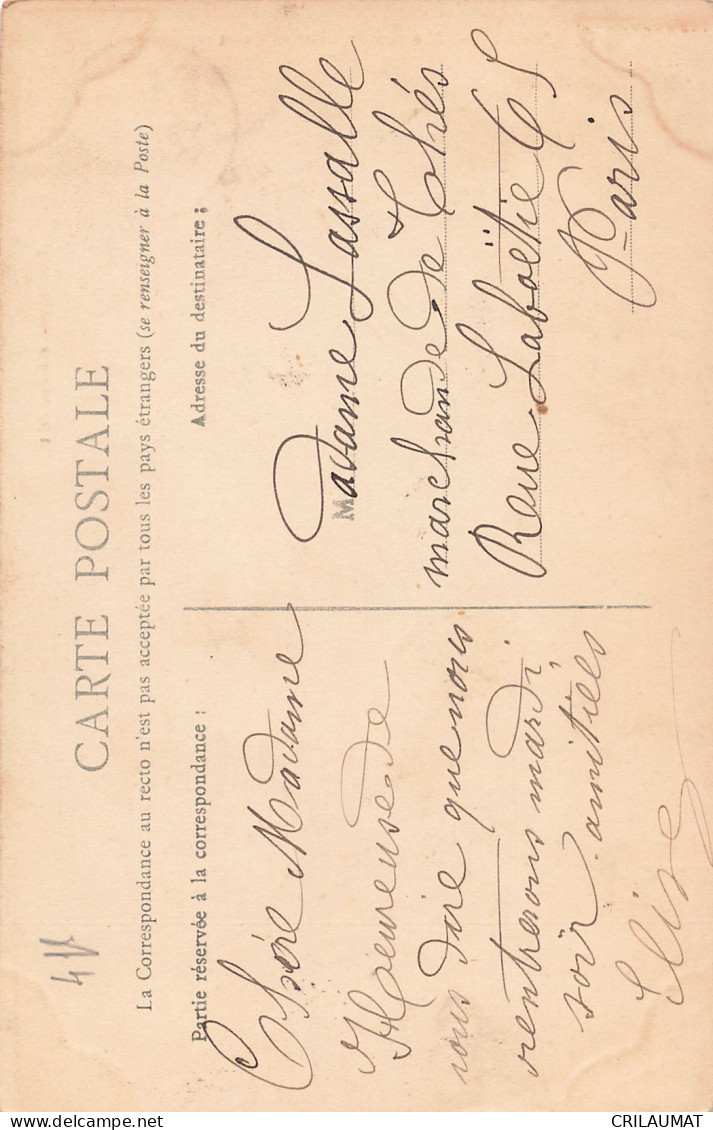 CARTE POSTALE
La Correspondance au recto n'est pas acceptée par tous les pays étrangers (se renseigner à la Poste)
Partie réservée à la correspondance :
Chère Madame
Heureuse de
vous dire que nous
rentrerons mardi
soir. amitiés
Elise
Adresse du destinataire :
Madame Lassalle
marchande de Thés
Rue Laboëtie 65
Paris
CRILAUMAT